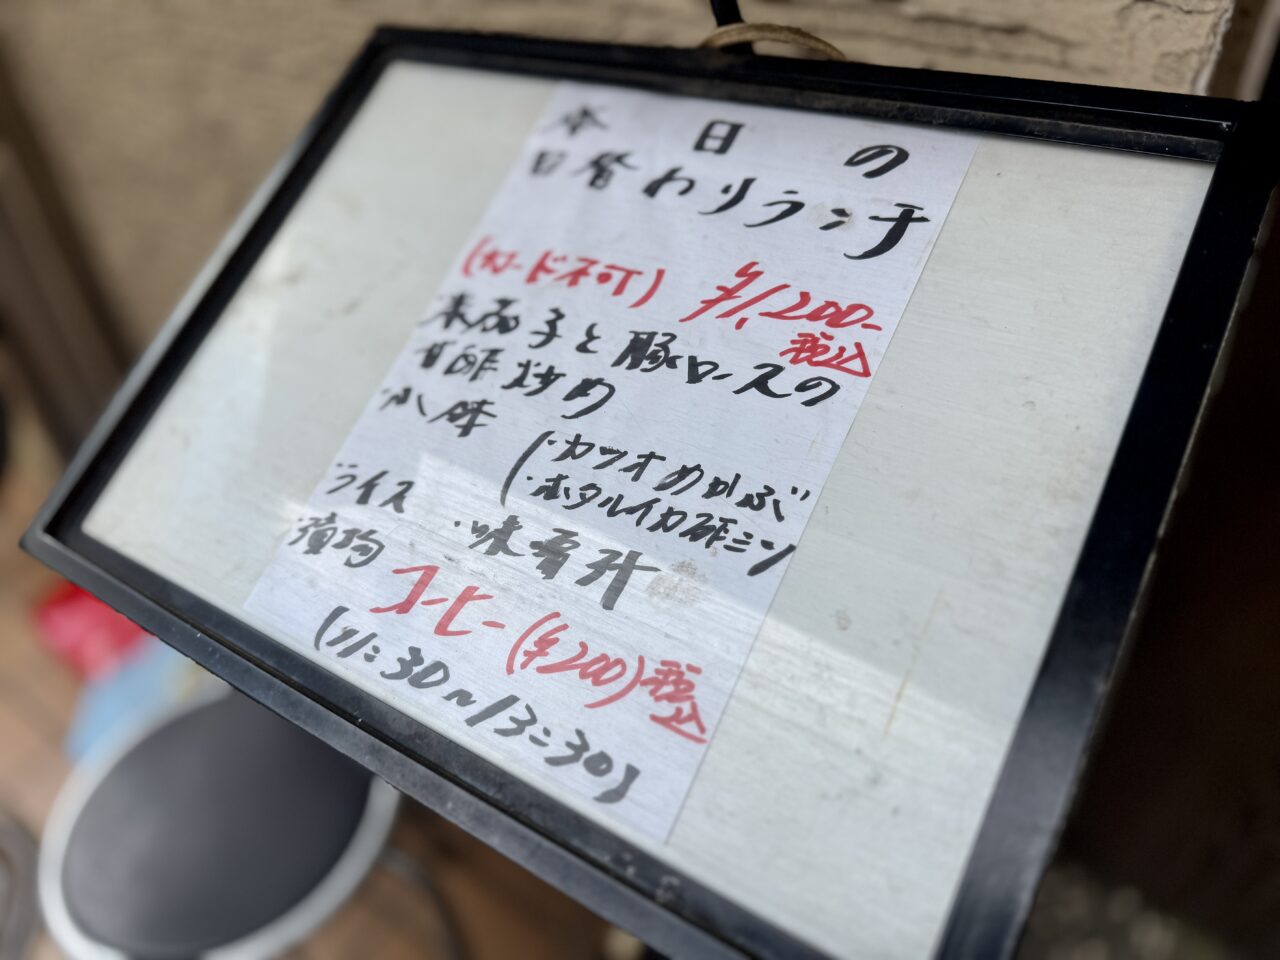 本日の
日替わりランチ
(カード不可) ¥1,200-
税込
米茄子と豚ロースの
甘酢炒め
・小鉢
(・カツオめかぶ
・ホタルイカ酢ミソ
・ライス ・味噌汁
・漬物
コーヒー(¥200)税込
(11:30〜13:30)